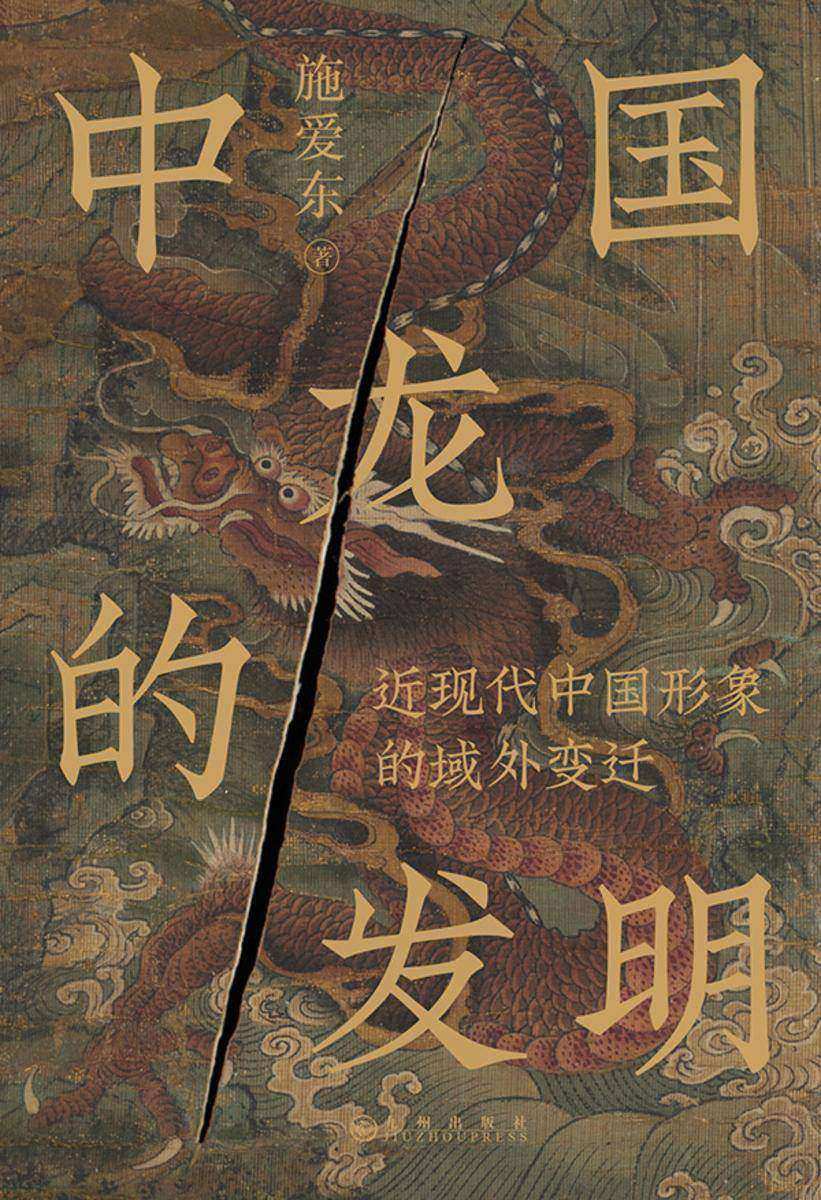 中国
龙
的
发明
施爱东 著
近现代中国形象
的域外变迁
九州出版社
JIUZHOUPRESS